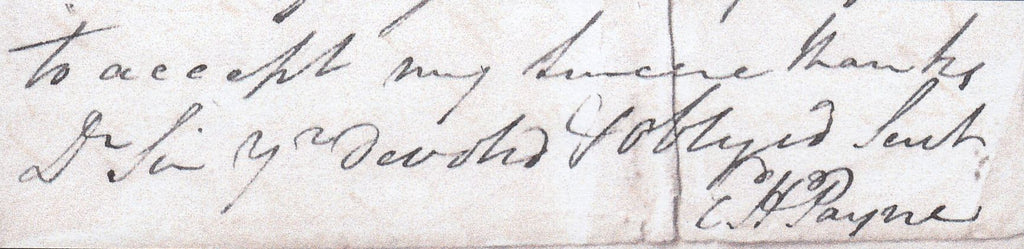 to accept my sincere thanks
Dr Sir Yr devoted & oblyged Sert
C. H. Payne